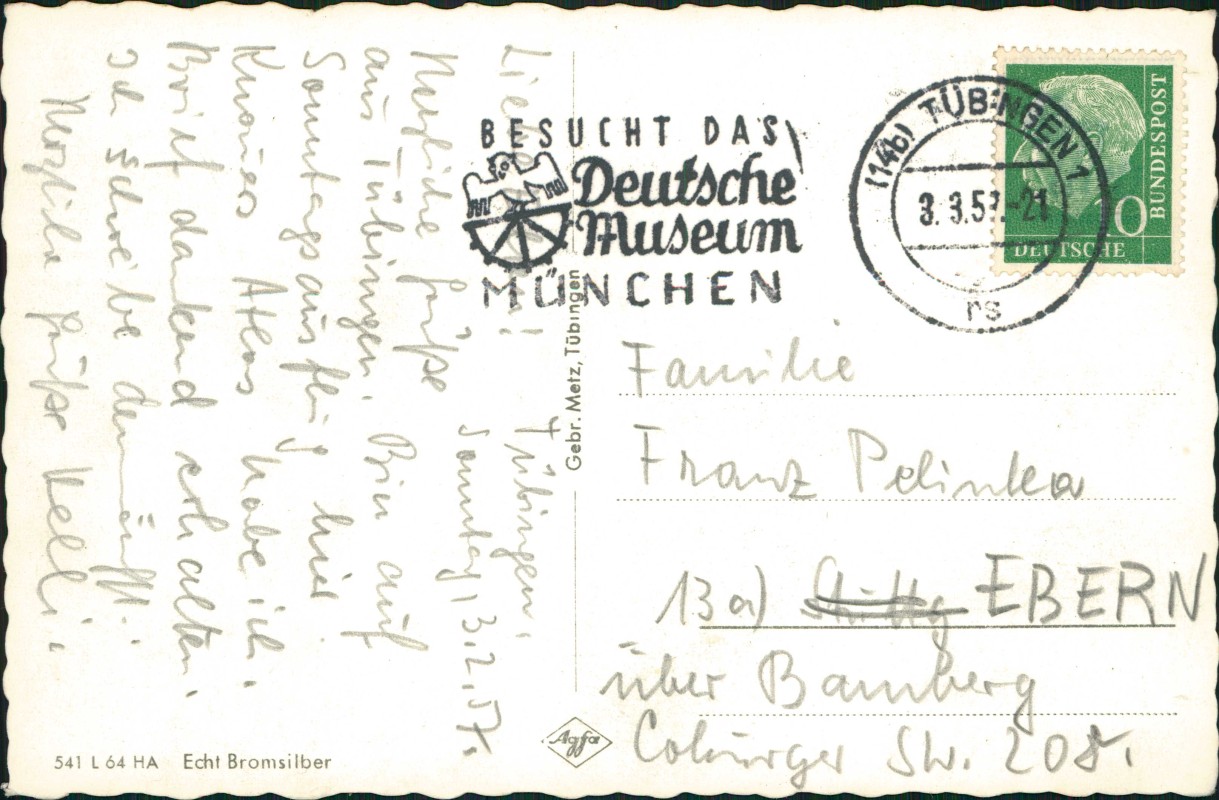 Tübingen,
Sonntag, 3. 2. 57.
Herzliche Grüße
aus Tübingen. Bin auf
Sonntagsausflug hier
Knauers Atlas habe ich
Brief dankend erhalten.
Ich schreibe demnächst!
Herzliche Grüße
BESUCHT DAS
Deutsche
Museum
MÜNCHEN
(14b) TÜBINGEN 1
3. 3.57.-21
rs
BUNDESPOST
DEUTSCHE
10
Gebr. Metz, Tübingen
Familie
Franz Pelinka
13a) EBERN
über Bamberg
Coburger Str. 208.
Agfa
541 L 64 HA Echt Bromsilber